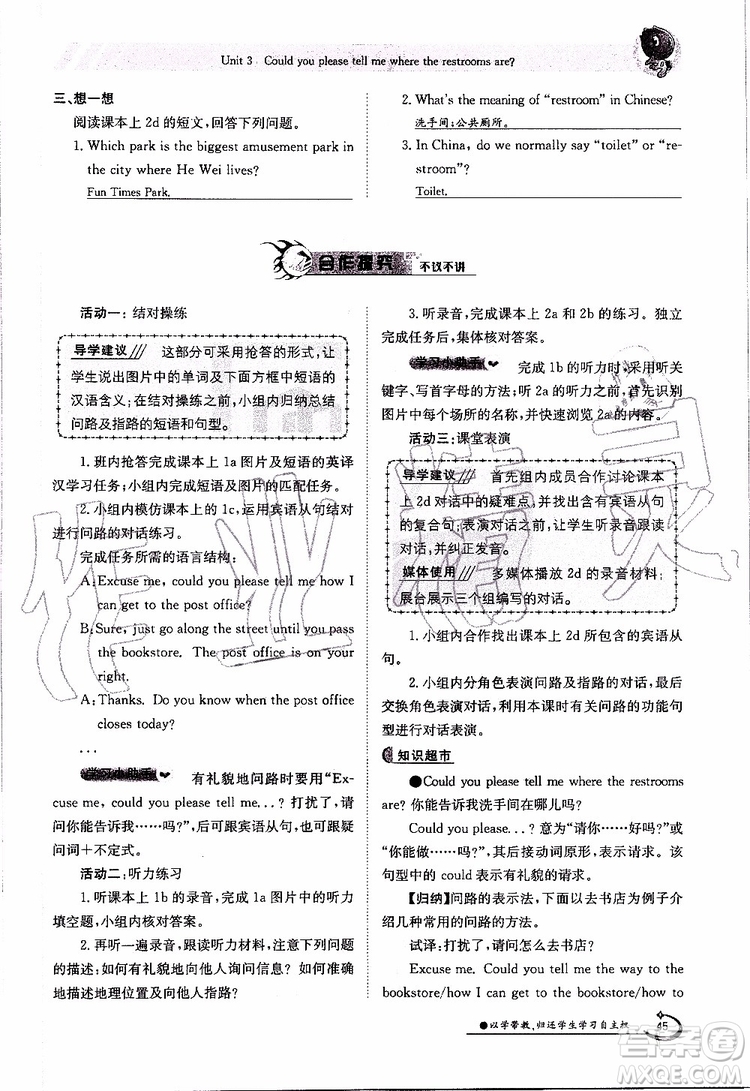 Unit 3 Could you please tell me where the restrooms are?
三、想一想
阅读课本上 2d 的短文，回答下列问题。
1. Which park is the biggest amusement park in
the city where He Wei lives?
Fun Times Park.
2. What's the meaning of “restroom” in Chinese?
洗手间；公共厕所。
3. In China, do we normally say “toilet” or “re-
stroom”?
Toilet.
合作探究 不议不讲
活动一：结对操练
导学建议 这部分可采用抢答的形式，让
学生说出图片中的单词及下面方框中短语的
汉语含义；在结对操练之前，小组内归纳总结
问路及指路的短语和句型。
1. 班内抢答完成课本上 1a 图片及短语的英译
汉学习任务；小组内短语及图片的匹配任务。
2. 小组内模仿课本上的 1c，运用宾语从句结对
进行问路的对话练习。
完成任务所需的语言结构：
A: Excuse me, could you please tell me how I
can get to the post office?
B: Sure, just go along the street until you pass
the bookstore. The post office is on your
right.
A: Thanks. Do you know when the post office
closes today?
...
学习小助手 有礼貌地问路时要用“Ex-
cuse me, could you please tell me...? 打扰了，请
问你能告诉我……吗?”，后可跟宾语从句，也可跟疑
问词＋不定式。
活动二：听力练习
1. 听课本上 1b 的录音，完成 1a 图片中的听力
填空题，小组内核对答案。
2. 再听一遍录音，跟读听力材料，注意下列问题
的描述：如何有礼貌地向他人询问信息？如何准确
地描述地理位置及向他人指路？
3. 听录音，完成课本上 2a 和 2b 的练习。独立
完成任务后，集体核对答案。
学习小助手 完成 1b 的听力时，采用听关
键字、写首字母的方法；听 2a 的听力之前，首先识别
图片中每个场所的名称，并快速浏览 2a 的内容。
活动三：课堂表演
导学建议 首先组内成员合作讨论课本
上 2d 对话中的疑难点，并找出含有宾语从句
的复合句；表演对话之前，让学生听录音跟读
对话，并纠正发音。
媒体使用 多媒体播放 2d 的录音材料；
展台展示三个组编写的对话。
1. 小组内合作找出课本上 2d 所包含的宾语从
句。
2. 小组内分角色表演问路及指路的对话，然后
交换角色表演对话，利用本课时有关问路的功能句
型进行对话表演。
知识超市
●Could you please tell me where the restrooms
are? 你能告诉我洗手间在哪儿吗？
Could you please...? 意为“请你……好吗?”或
“你能做……吗?”，其后接动词原形，表示请求。该
句型中的 could 表示有礼貌的请求。
【归纳】问路的表示法，下面以去书店为例子介
绍几种常用的问路的方法。
试译：打扰了，请问怎么去书店？
Excuse me. Could you tell me the way to the
bookstore/how I can get to the bookstore/how to
●以学带教，归还学生学习自主权 45
作业精灵
答案圈
MXQE.COM